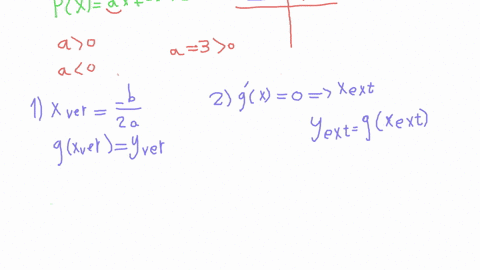 P(x)=ax
a>0
a<0
a=3>0
1) x ver = -b/2a
g(xver)=yver
2) g'(x)=0 => xext
yext=g(xext)